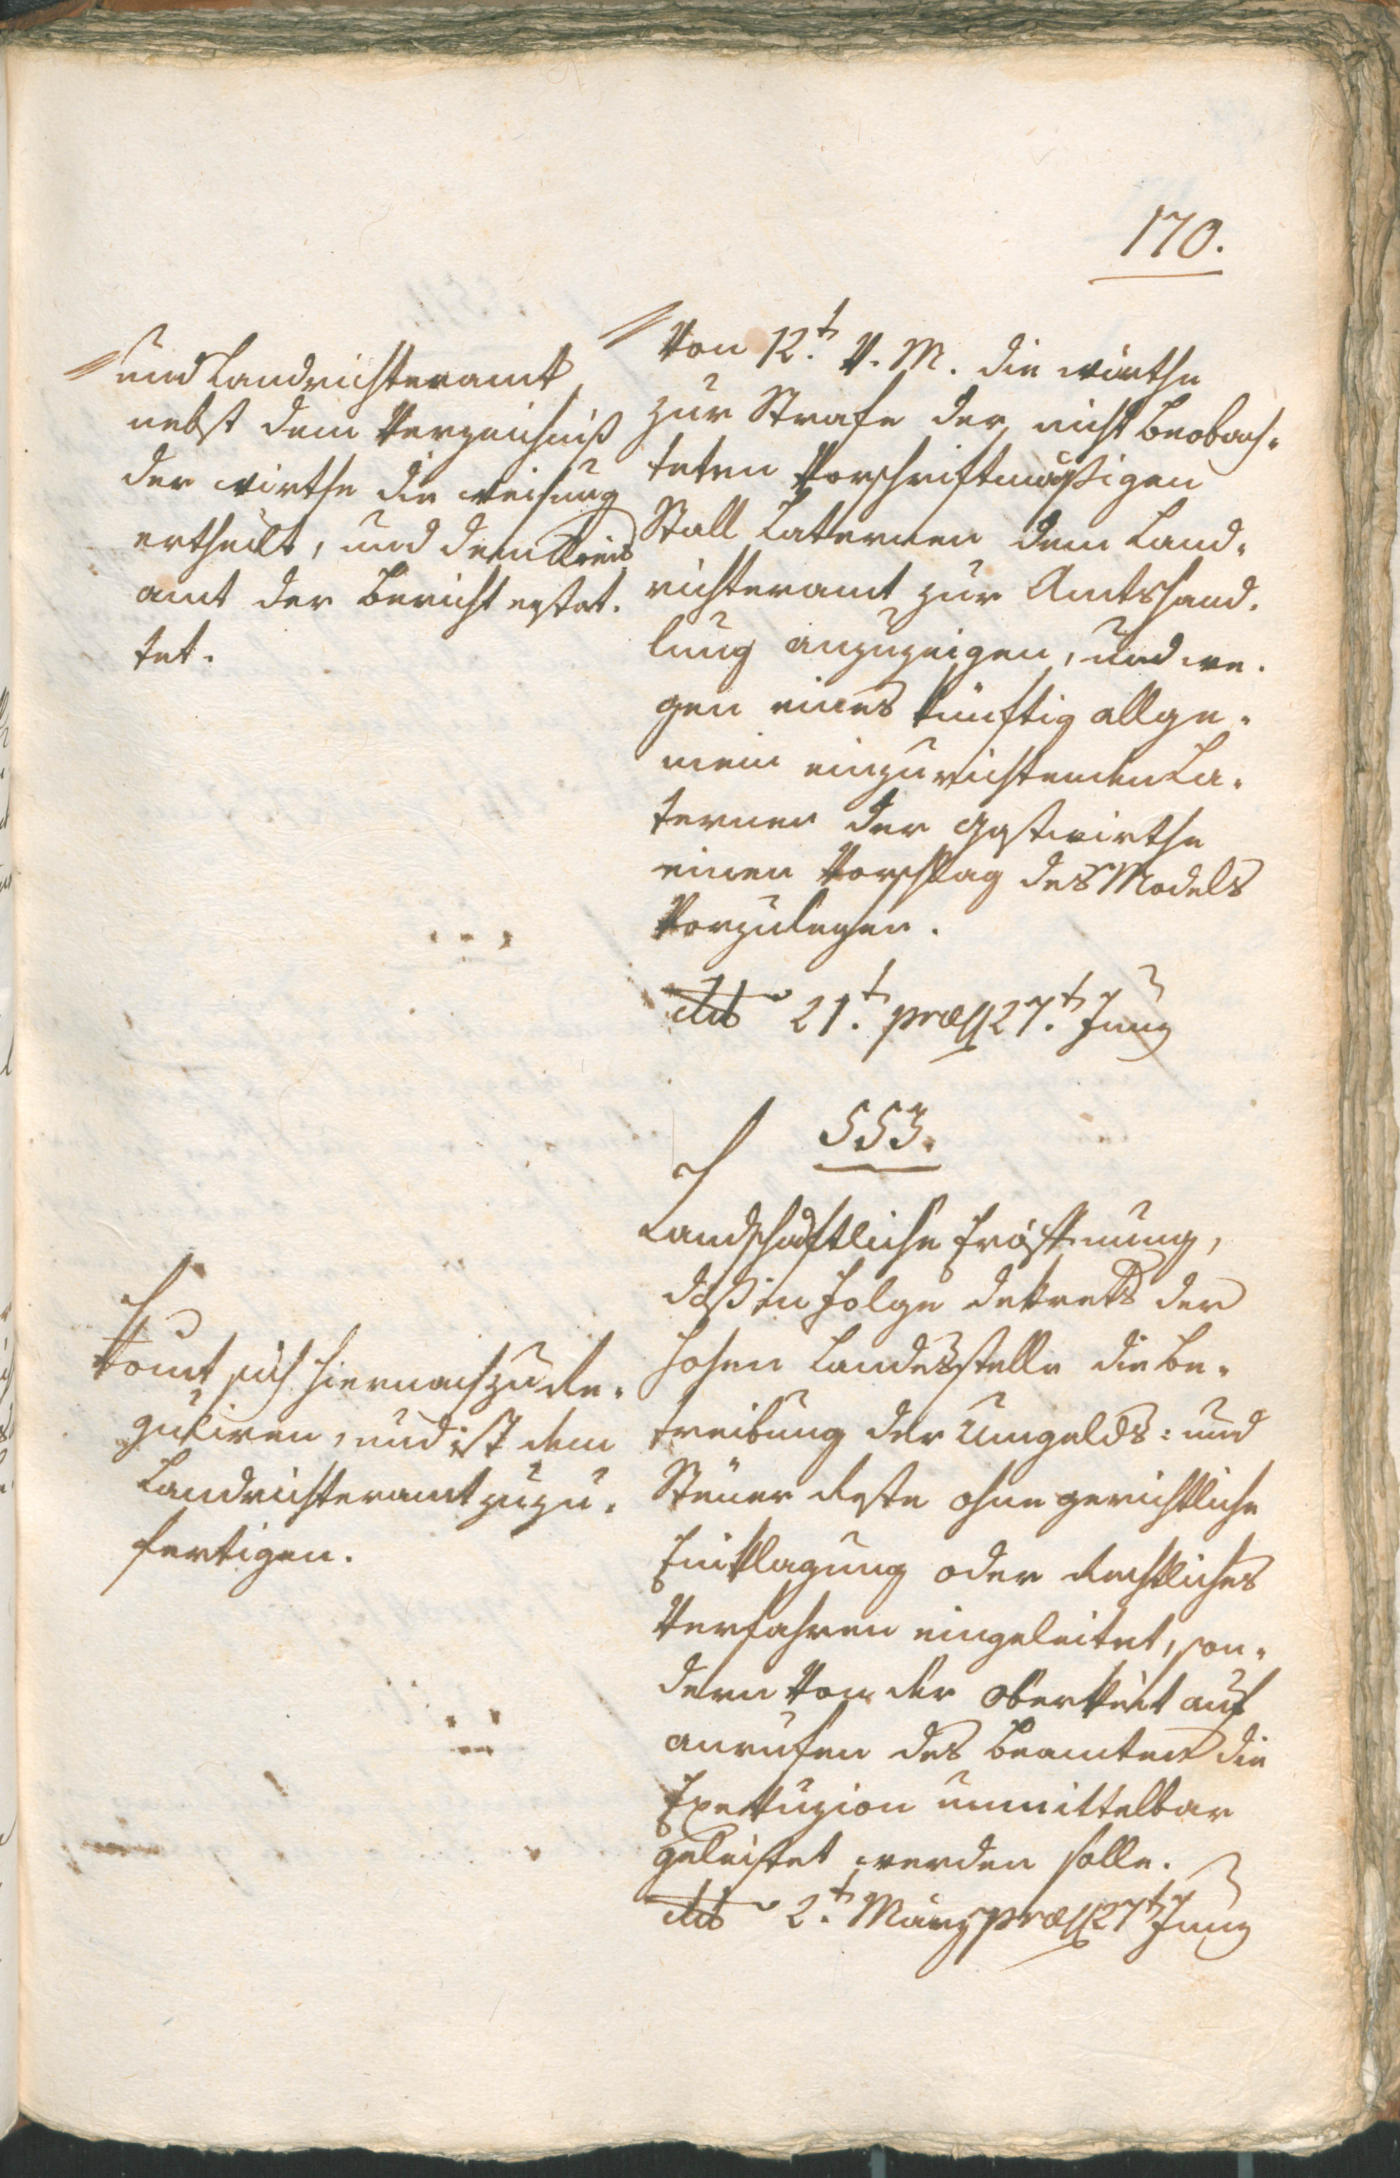 170.
und Landrichteramt
nebst dem Verzeichniß
der wirthe die weisung
ertheilt, und dem Kreis
amt der Bericht erstat-
tet.
Von 12.t V. M. die wirthe
zur Strafe der nicht beobach-
teten Vorschriftmäßigen
Stall Laternen dem Land-
richteramt zur Amtshand-
lung anzuzeigen, und we-
gen eines künftig allge-
mein einzurichtenden La-
ternen der Gastwirthe
einen Vorschlag des Models
Vorzulegen.
dto 21.t præs 27.t Juny
553.
Landschäftliche Eröffnung,
daß in Folge dekrets der
hohen Landesstelle die be-
treibung der Umgelds- und
Steuer Reste ohne gerichtliche
Einklagung oder Rechtliches
Verfahren eingeleitet, son-
dern Von der Oberkeit auf
anrufen des Beamten die
Exekuzion unmittelbar
geleistet werden solle.
dto 2.t März præs 27t Juny
Komt sich hiernach zu Re-
guliren, und ist dem
Landrichteramt zuzu-
fertigen.